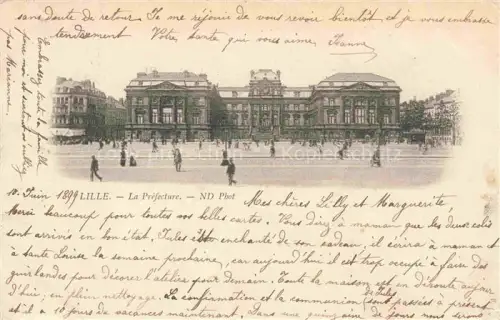 sans doute de retour. Je me réjouis de vous revoir bientôt et je vous embrasse
tendrement Votre tante qui vous aime, Jeanne
Embrassez toute la famille
pour moi et surtout
pas Marianne
LILLE. — La Préfecture. — ND Phot
10 Juin 1899
Mes chères Lilly et Marguerite,
Merci beaucoup pour toutes vos belles cartes. Vous direz à maman que les deux colis
sont arrivés en bon état. Jules est enchanté de son cadeau, il écrira à maman et
à tante Louise la semaine prochaine, car aujourd'hui il est trop occupé à faire des
guirlandes pour décorer l'atelier pour demain. Toute la maison est en déroute aujour
d'hui, en plein nettoyage. La confirmation et la communion sont passées à présent
et il a 10 jours de vacances maintenant. Dans une quinzaine de jours nous serons